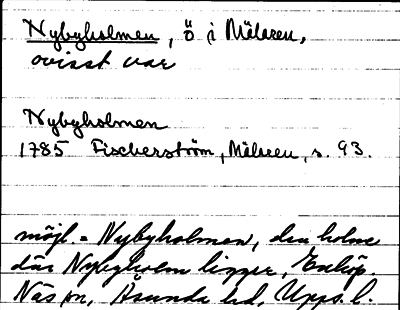 Nybyholmen, ö i Mälaren,
ovisst var
Nybyholmen
1785 Fischerström, Mälaren, s. 93.
möjl. = Nybyholmen, den holme
där Nybyholm ligger, Enköp.
Näs sn, Åsunda hd, Upps. l.